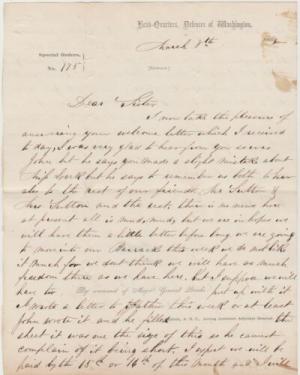 Head-Quarters, Defences of Washington,
Special Orders,
No. 175
March 8th
[Extract.]
Dear Sister
I now take the pleasure of
answering your welcome letter which I received
to day, I was very glad to hear from you
John but he says you made a slight mistake about
his but he says to remember us both to her
also to the rest of our friends, Mr Sutton &
Mrs Sutton and the rest, their is no news here
at present all is mud, mud, mud but we are in hopes we
will have them a little better before long we are going
to move into our Barracks this week we do not like
it much for we dont think we will have as much
freedom there as we have here, but I suppose we will
have to put up with it
By command of Major General Banks:
I wrote a letter to this week or at least
john wrote it and he filled
Assistant Adjutant General
the sheet it was one the size of this so he cannot
complain of it being short, I expect we will be
paid by the 15th or 16th of this month and I will